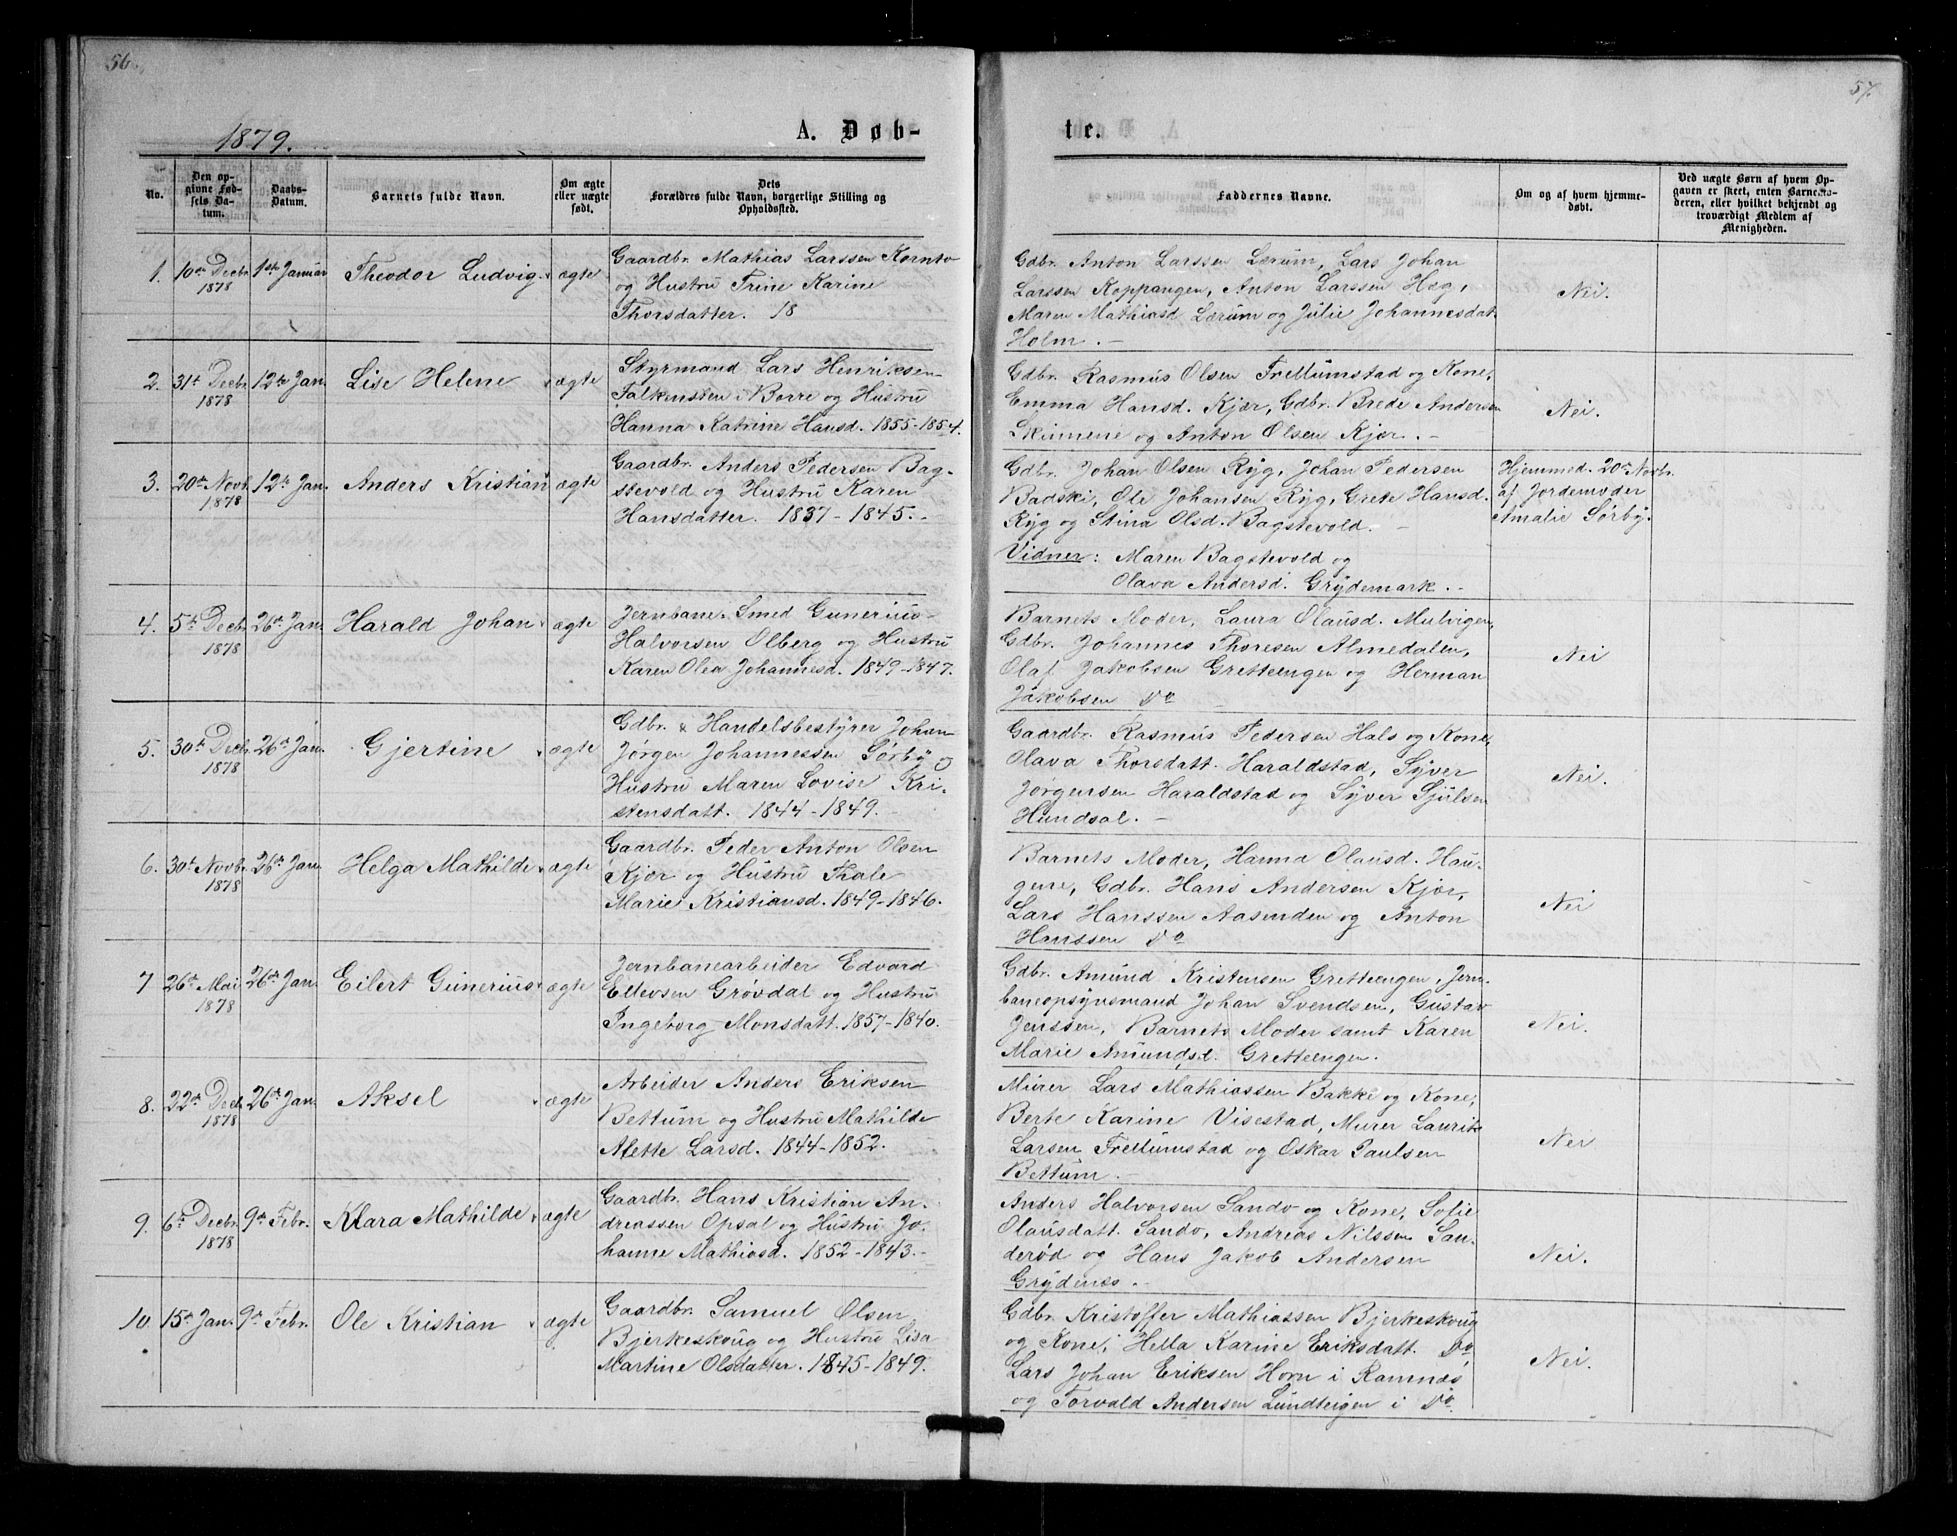 56.
1879.
A. Døb-
No.
Den op-
givne Fød-
sels Da-
tum.
Daabs-
Datum.
Barnets fulde Navn.
Om ægte
eller uægte
født.
Dets
Forældres fulde Navn, borgerlige Stilling og
Opholdssted.
1. 10de Decbr. 1878
1ste Januar
Theodor Ludvig
ægte
Gaardbr. Mathias Larssen Kornto
og Hustru Trine Karine
Thorsdatter. 18
2. 31te Decbr. 1878
12te Jan.
Lise Helene
ægte
Styrmand Lars Henriksen
Falkensten i Borre og Hustru
Hanna Katrine Hansd. 1855-1854.
3. 20de Novb. 1878
12te Jan.
Anders Kristian
ægte
Gaardbr. Anders Pedersen Bag-
stevold og Hustru Karen
Hansdatter. 1837-1845.
4. 5te Decbr. 1878
26de Jan.
Harald Johan
ægte
Jernbane-Smed Gunerius
Halvorsen Olberg og Hustru
Karen Olea Johannesd. 1849-1847.
5. 30te Decbr. 1878
26de Jan.
Gjertine
ægte
Gdbr. & Handelsbestyrer Johan
Jørgen Johannessen Sørby og
Hustru Maren Lovise Kri-
stensdatt. 1844-1849.
6. 30te Novbr. 1878
26de Jan.
Helga Mathilde
ægte
Gaardbr. Peder Anton Olsen
Kjær og Hustru Thale
Marie Kristiansd. 1849-1846.
7 26de Mai 1878
26de Jan.
Eilert Gunerius
ægte
Jernbanearbeider Edvard
Ellevsen Grövdal og Hustru
Ingeborg Monsdatt. 1857-1840.
8. 22de Decb. 1878
26de Jan.
Aksel
ægte
Arbeider Anders Eriksen
Bettum og Hustru Mathilde
Alette Larsd. 1844-1852.
9. 6te Decbr. 1878
9de Febr.
Klara Mathilde
ægte
Gaardbr. Hans Kristian An-
dreassen Opsal og Hustru Jo-
hanne Mathiasd. 1852-1843.
10. 15de Jan.
9de Febr.
Ole Kristian
ægte
Gaardbr. Samuel Olsen
Bjerkeskoug og Hustru Lisa
Martine Olsdatter. 1845-1849.
57.
te.
Faddernes Navne.
Om og af hvem hjemme-
døbt.
Ved uægte Børn af hvem Op-
gaven er skeet, enten Barnemo-
deren, eller hvilket bekjendt og
troværdigt Medlem af
Menigheden.
Gdbr. Anton Larssen Lærum, Lars Johan
Larssen Koppangen, Anton Larssen Hæg,
Maren Mathiasd Lærum og Julie Johannesdat
Holm. -
Nei.
Gdbr. Rasmus Olsen Frellumstad og Kone,
Emma Hansd. Kjær, Gdbr. Brede Andersen
Skinnene og Anton Olsen Kjær. -
Nei.
Gdbr. Johan Olsen Ryg, Johan Pedersen
Badski, Ole Johansen Ryg, Grete Hansd.
Ryg og Stina Olsd. Bagstevold.
Vidner: Maren Bagstevold og
Olava Andersd. Grydemark. -
Hjemmed. 20de Novbr.
af Jordemoder
Amalie Sørby.
Barnets Moder, Laura Olausd. Mulvigen,
Gdbr. Johannes Thoresen Almedalen,
Olaf Jakobsen Gretteengen og Herman
Jakobsen Do
Nei
Gaardbr. Rasmus Pedersen Hals og Kone,
Olava Thorsdatt. Haraldstad, Syver
Jørgensen Haraldstad og Syver Sjulsen
Hundsal. -
Nei.
Barnets Moder, Hanna Olausd. Hau-
gene, Gdbr. Hans Andersen Kjær,
Lars Hanssen Aasenden og Anton
Hanssen Do
Nei
Gdbr. Amund Kristensen Gretteengen, Jern-
baneopsynsmand Johan Svendsen, Gustav
Jenssen, Barnets Moder samt Karen
Marie Amundsd. Gretteengen.
Nei.
Murer Lars Mathiassen Bakke og Kone,
Berte Karine Visestad, Murer Laurits
Larsen Frellumstad og Oskar Paulsen
Bettum.
Nei
Anders Halvorsen Sando og Kone, Sofie
Olausdatt. Sando, Andreas Nilssen San-
derød og Hans Jakob Andersen
Grydenæs. -
Nei.
Gdbr. Kristoffer Mathiassen Bjerkeskoug
og Kone, Hella Karine Eriksdatt. Do,
Lars Johan Eriksen Horn i Ramnæs
og Torvald Andersen Lundteigen i Do.
Nei.